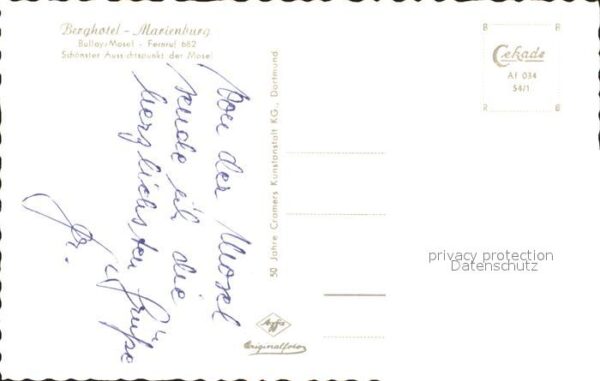 Berghotel - Marienburg
Bullay/Mosel - Fernruf 682
Schönster Aussichtspunkt der Mosel
Von der Mosel
sende ich die
herzlichsten Grüße
Gr.
50 Jahre Cramers Kunstanstalt KG., Dortmund
Cekade
AF 034
54/1
R
R
R
B
privacy protection
Datenschutz
Agfa
Originalfoto